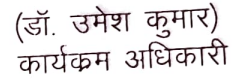 (डॉ. उमेश कुमार)
कार्यक्रम अधिकारी